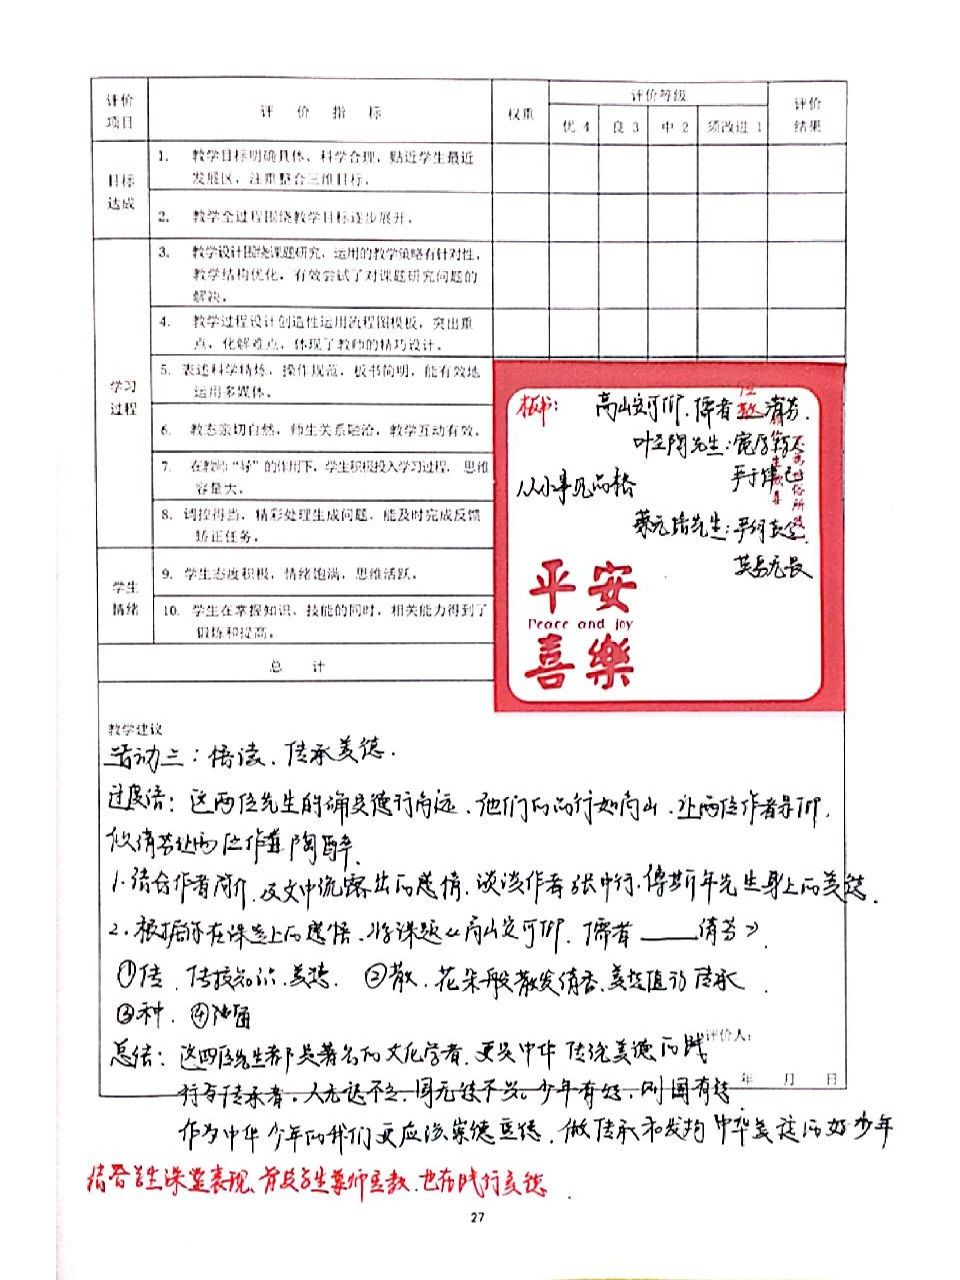 评价项目 评 价 指 标 权重 评价等级 评价结果
优 4 良 3 中 2 须改进 1
目标达成
1. 教学目标明确具体、科学合理，贴近学生最近
发展区，注重整合三维目标。
2. 教学全过程围绕教学目标逐步展开。
学习过程
3. 教学设计围绕课题研究，运用的教学策略有针对性，
教学结构优化，有效尝试了对课题研究问题的
解决。
4. 教学过程设计创造性运用流程图模板，突出重
点，化解难点，体现了教师的精巧设计。
5. 表述科学精炼，操作规范，板书简明，能有效地
运用多媒体。
6. 教态亲切自然，师生关系融洽，教学互动有效。
7. 在教师“导”的作用下，学生积极投入学习过程，思维
容量大。
8. 调控得当，精彩处理生成问题，能及时完成反馈
矫正任务。
学生情绪
9. 学生态度积极，情绪饱满，思维活跃。
10. 学生在掌握知识、技能的同时，相关能力得到了
锻炼和提高。
总 计
板书： 高山定可仰，儒者 散 清芬.
叶圣陶先生：宽厚待人
严于律己
从小事见品格
蔡元培先生：
平安
Peace and joy
喜樂
教学建议
活动三：悟读、传承美德.
过度语：这两位先生的确是德行高远、他们的品行如高山、让两位作者景仰，
似清芬让两位作者陶醉.
1.结合作者简介、及文中流露出的感情，谈谈作者张中行、傅斯年先生身上的美德.
2.根据你在课堂上的感悟、将课题《高山定可仰，儒者 ____ 清芬》.
①传、传授知识、美德. ②散、花朵般散发清香、美德值得传承.
③种. ④
评价人：
总结：这四位先生都是著名的文化学者、更是中华传统美德的践
年 月 日
行与传承者。人无德不立，国无德不兴。少年有德，则国有德
作为中华少年的我们更应该崇德立德、做传承和发扬中华美德的好少年
结合学生课堂表现、普及学生尊师重教、也在践行美德.
27